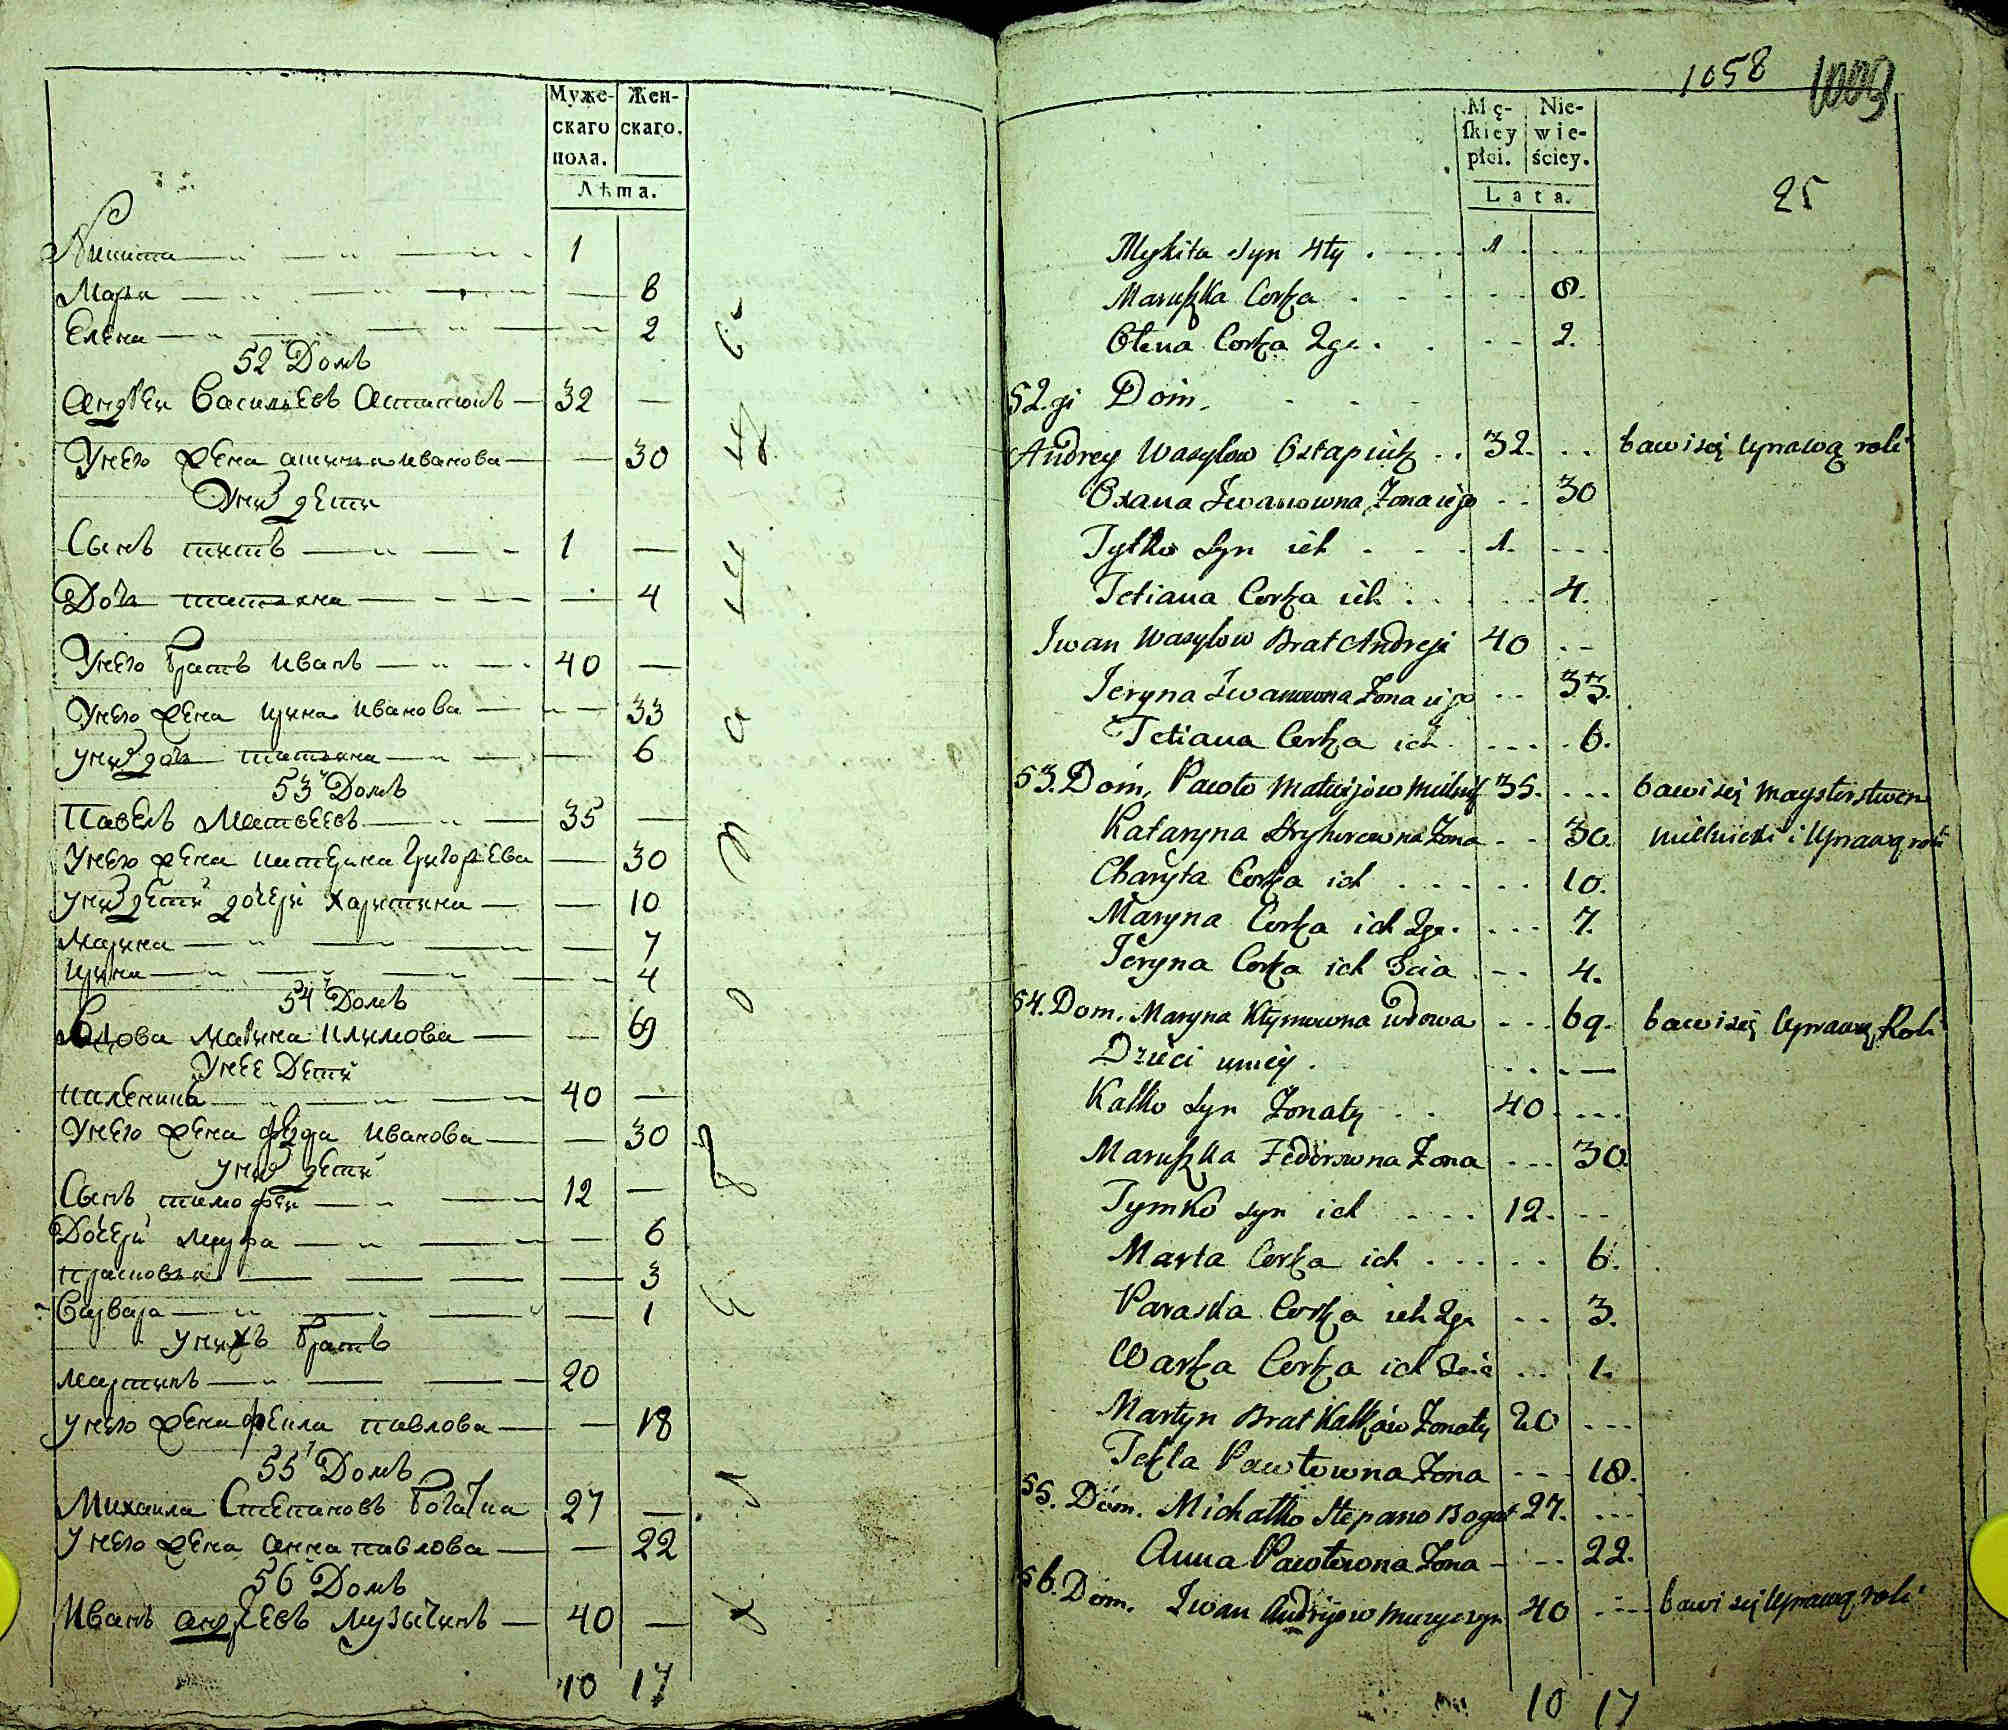 Муже-
скаго
пола.
Жен-
скаго.
Лѣта.
Никита 1
Марья 8
Елена 2
52 Домъ
Андрей Васильевъ Остапюкъ 32
У него жена аксинья иванова 30
У них дети
Сынъ титъ 1
Дочь татьяна 4
У него братъ иванъ 40
У него жена ирина иванова 33
у них дочь татьяна 6
53 Домъ
Павелъ Матвеевъ 35
У него жена катерина григорьева 30
у них дети дочери харитина 10
Марина 7
Ирина 4
54 Домъ
Вдова Марина Климова 69
У нее Дети
40
У него жена иванова 30
у них дети
Сынъ тимофей 12
Дочери 6
прасковья 3
Варвара 1
у нихъ братъ
мартинъ 20
у него жена фекла павлова 18
55 Домъ
Михаила Степановъ 27
У него жена анна павлова 22
56 Домъ
Иванъ андреевъ музычинъ 40
10 17
1058
25
Mę-
ſkiey
płci.
Nie-
wie-
ściey.
Lata.
Mykita syn 4ty 1
Maruſzka Corka 8.
Ołena Corka 2ga 2.
52.gi Dom.
Andrey Wasylow Ostapiuk 32. bawi się uprawą roli
Oxana Iwanowna Żona iego 30
Tytko Syn ich 1.
Tetiana Corka ich 4.
Iwan Wasylow Brat Andreja 40
Jeryna Iwanowna Żona iego 33.
Tetiana Corka ich 6.
53. Dom, Pawło Matwijow Mielnik 35. bawi się maysterstwem
Kataryna Hryhorowna Żona 30. mielnicki i uprawą roli
Charyta Corka ich 10.
Maryna Corka ich 2ga 7.
Jeryna Corka ich 3cia 4.
54. Dom. Maryna Klymowna wdowa 69. bawi się uprawą Roli
Dzieci u niey
Kałko Syn Żonaty 40
Maruſzka Fedorowna Żona 30
Tymko syn ich 12.
Marta Corka ich 6.
Paraska Corka ich 2ga 3.
Warka Corka ich 3cia 1.
Martyn Brat Kałkow Żonaty 20
Tekla Pawłowna Żona 18.
55. Dom. Michałko Stepano Bogat 27.
Anna Pawłowna Żona 22.
56. Dom. Iwan Andrijow Muzyczyn 40 bawi się uprawą roli
10 17